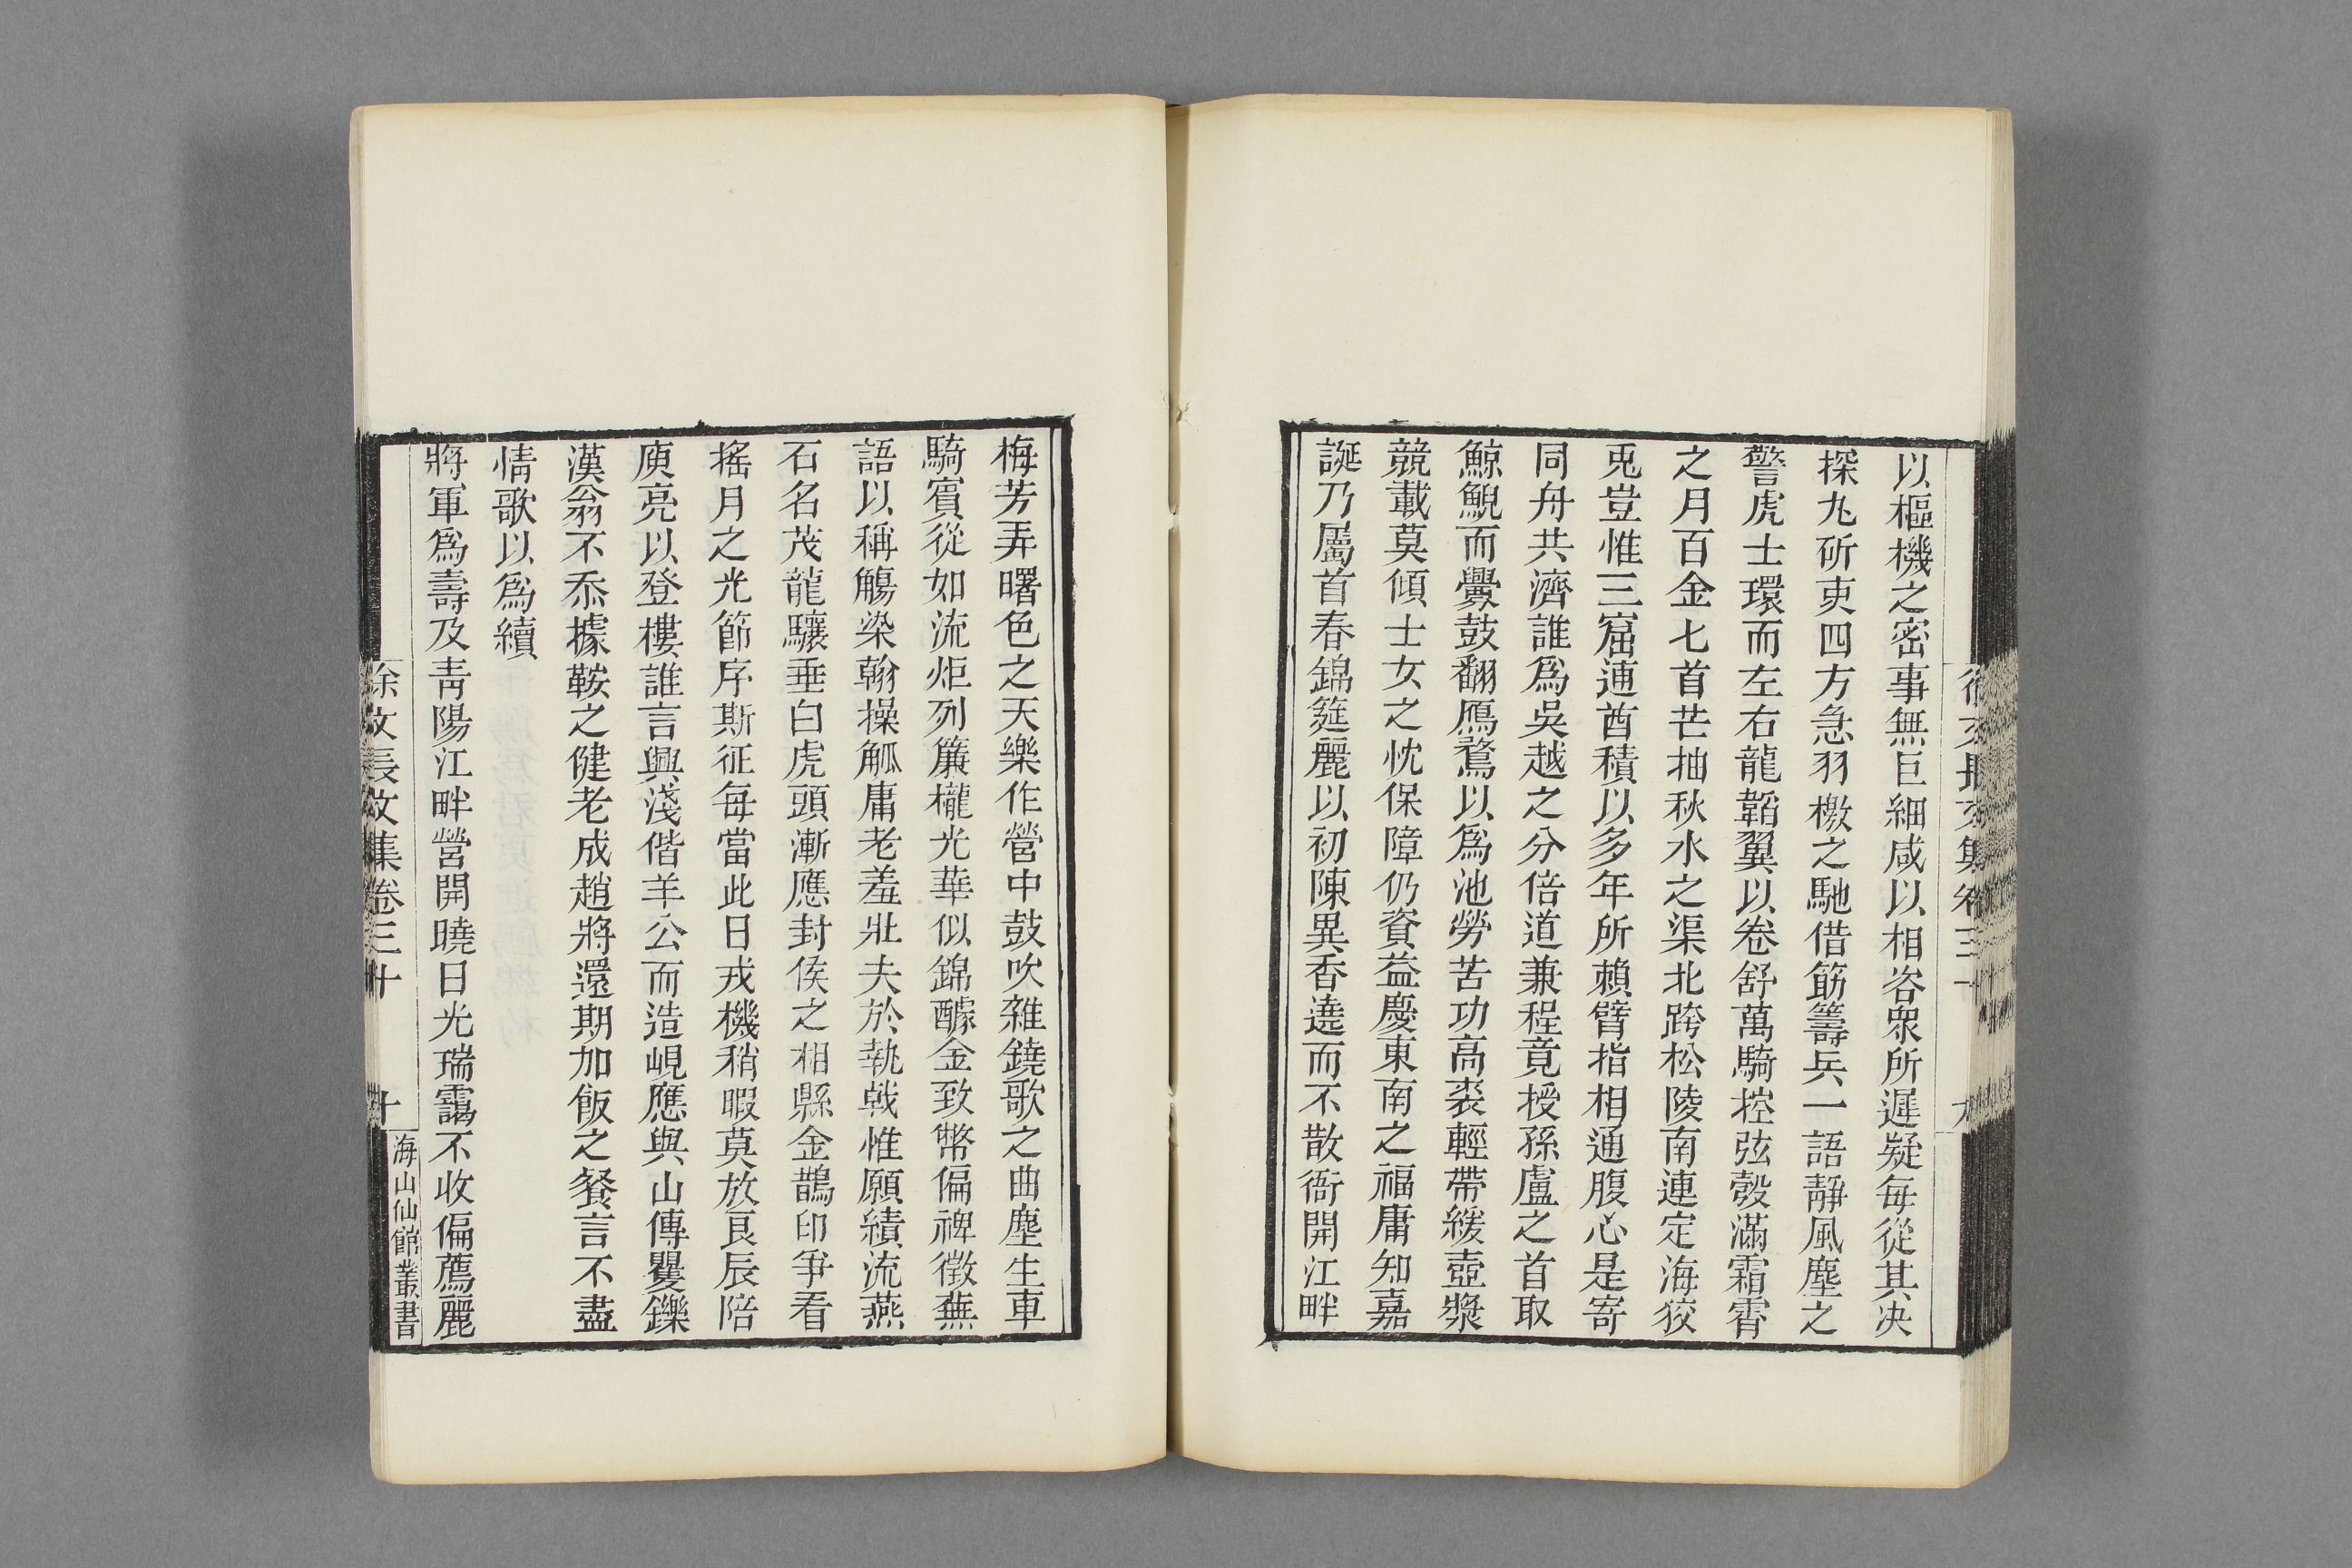 以樞機之密事無巨細咸以相咨衆所遲疑每從其決
探丸斫吏四方急羽檄之馳借筯籌兵一語靜風塵之
警虎士環而左右龍韜翼以卷舒萬騎控弦彀滿霜霄
之月百金七首芒抽秋水之渠北跨松陵南連定海狡
兎豈惟三窟逋酋積以多年所賴臂指相通腹心是寄
同舟共濟誰爲吳越之分倍道兼程竟授孫盧之首取
鯨鯢而釁鼓翻鴈鶩以爲池勞苦功高裘輕帶緩壺漿
競載莫傾士女之忱保障仍資益慶東南之福庸知嘉
誕乃屬首春錦筵麗以初陳異香遶而不散衙開江畔
梅芳弄曙色之天樂作營中鼓吹雜鐃歌之曲塵生車
騎賓從如流炬列簾櫳光華似錦醵金致幣偏裨徵蕪
語以稱觴染翰操觚庸老羞壯夫於執戟惟願績流燕
石名茂龍驤垂白虎頭漸應封侯之相縣金鵲印爭看
搖月之光節序斯征每當此日戎機稍暇莫放良辰陪
庾亮以登樓誰言興淺偕羊公而造峴應與山傳矍鑠
漢翁不忝據鞍之健老成趙將還期加飯之餐言不盡
情歌以爲續
將軍爲壽及靑陽江畔營開曉日光瑞靄不收偏薦麗
徐文長文集卷三十
十
海山仙館叢書